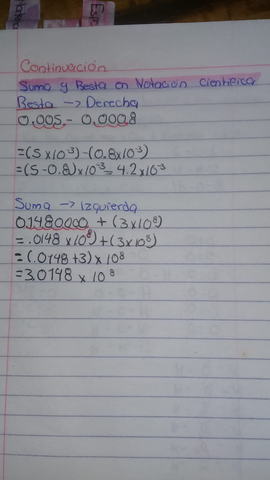 Continuación
Suma y Resta en Notación Cientifica
Resta → Derecha
0.005 - 0.0008
=(5 x10⁻³)-(0.8x10⁻³)
=(5-0.8)x10⁻³= 4.2x10⁻³
Suma → Izquierda
01480000 + (3x10⁸)
=.0148 x10⁸)+(3x10⁸)
=(.0148+3) x 10⁸
=3.0148 x 10⁸